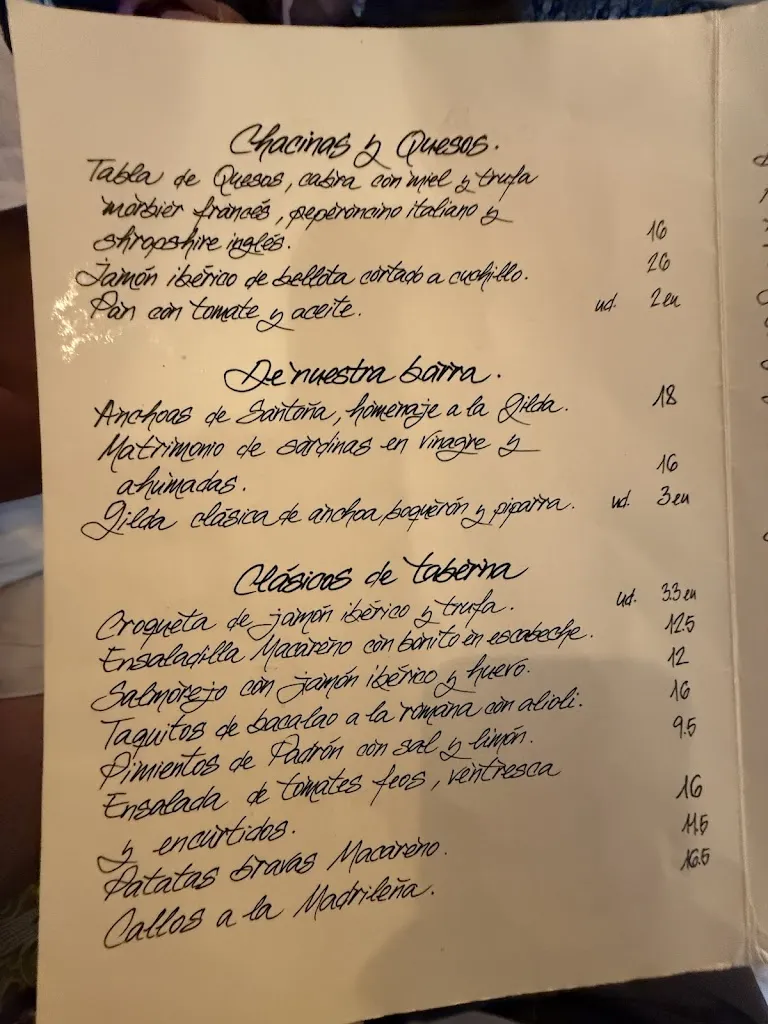 Chacinas y Quesos.
Tabla de Quesos, cabra con miel y trufa
morbier francés, peperoncino italiano y
shropshire inglés. 16
Jamón ibérico de bellota cortado a cuchillo. 26
Pan con tomate y aceite. ud. 2eu
De nuestra barra.
Anchoas de Santoña, homenaje a la Gilda. 18
Matrimonio de sardinas en vinagre y
ahumadas. 16
Gilda clásica de anchoa, boquerón y piparra. ud. 3eu
Clásicos de taberna
Croqueta de jamón ibérico y trufa. ud. 3.3eu
Ensaladilla Macareno con bonito en escabeche. 12.5
Salmorejo con jamón ibérico y huevo. 12
Taquitos de bacalao a la romana con alioli. 16
Pimientos de Padrón con sal y limón. 9.5
Ensalada de tomates feos, ventresca
y encurtidos. 16
Patatas bravas Macareno. 11.5
Callos a la Madrileña. 16.5